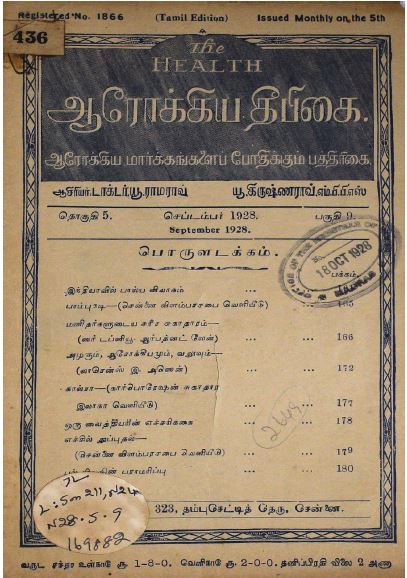 Registered No. 1866 (Tamil Edition) Issued Monthly on the 5th
436
The
HEALTH
ஆரோக்கிய தீபிகை.
ஆரோக்கிய மார்க்கங்களைப் போதிக்கும் பத்திரிகை.
ஆசிரியர். டாக்டர். யூ. ராமராவ் யூ. கிருஷ்ணராவ், எம். பி. பி. எஸ்
தொகுதி 5. செப்டம்பர் 1928. பகுதி 9.
September 1928.
பொருளடக்கம்.
பக்கம்.
18 OCT 1928
இந்தியாவில் பால்ய விவாகம் ...
பாம்புகடி—(சென்னை விளம்பரசபை வெளியீடு) ... 165
மனிதர்களுடைய சரீர சுகாதாரம்—
(ஸர் டப்ளியூ. ஆர்பத்னட் லேன்) ... 166
அழகும், ஆரோக்கியமும், வலுவும்—
(லாரென்ஸ் இ. அனென்) ... ... 172
காலரா—(கார்ப்பொரேஷன் சுகாதார
இலாகா வெளியீடு) ... ... 177
ஒரு வைத்தியரின் எச்சரிக்கை ... ... 178
எச்சில் துப்புதல்—
(சென்னை விளம்பரசபை வெளியீடு) ... ... 179
பராமரிப்பு ... ... 180
2669
7L
L:5m211,N24
N28.5.9
169882
323, தம்புசெட்டித் தெரு, சென்னை.
வருட சந்தா உள்நாடு ரூ 1-8-0. வெளிநாடு ரூ 2-0-0. தனிப்பிரதி விலை 2 அணா